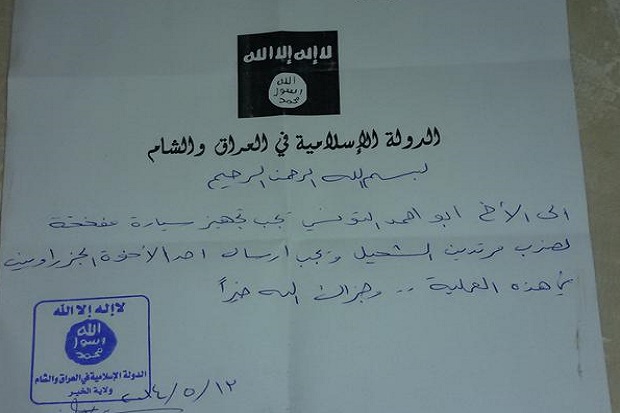 لا إله إلا الله
الله
رسول
محمد
الدولة الإسلامية في العراق والشام
بسم الله الرحمن الرحيم
الى الأخ ابو احمد التونسي يجب تجهيز سيارة مفخخة
لضرب مرتدين الشحيل ويجب ارسال احد الأخوة الجزراويين
في هذه العملية .. وجزاك الله خيراً
لا إله إلا الله
الله
رسول
محمد
الدولة الإسلامية في العراق والشام
ولاية الخير